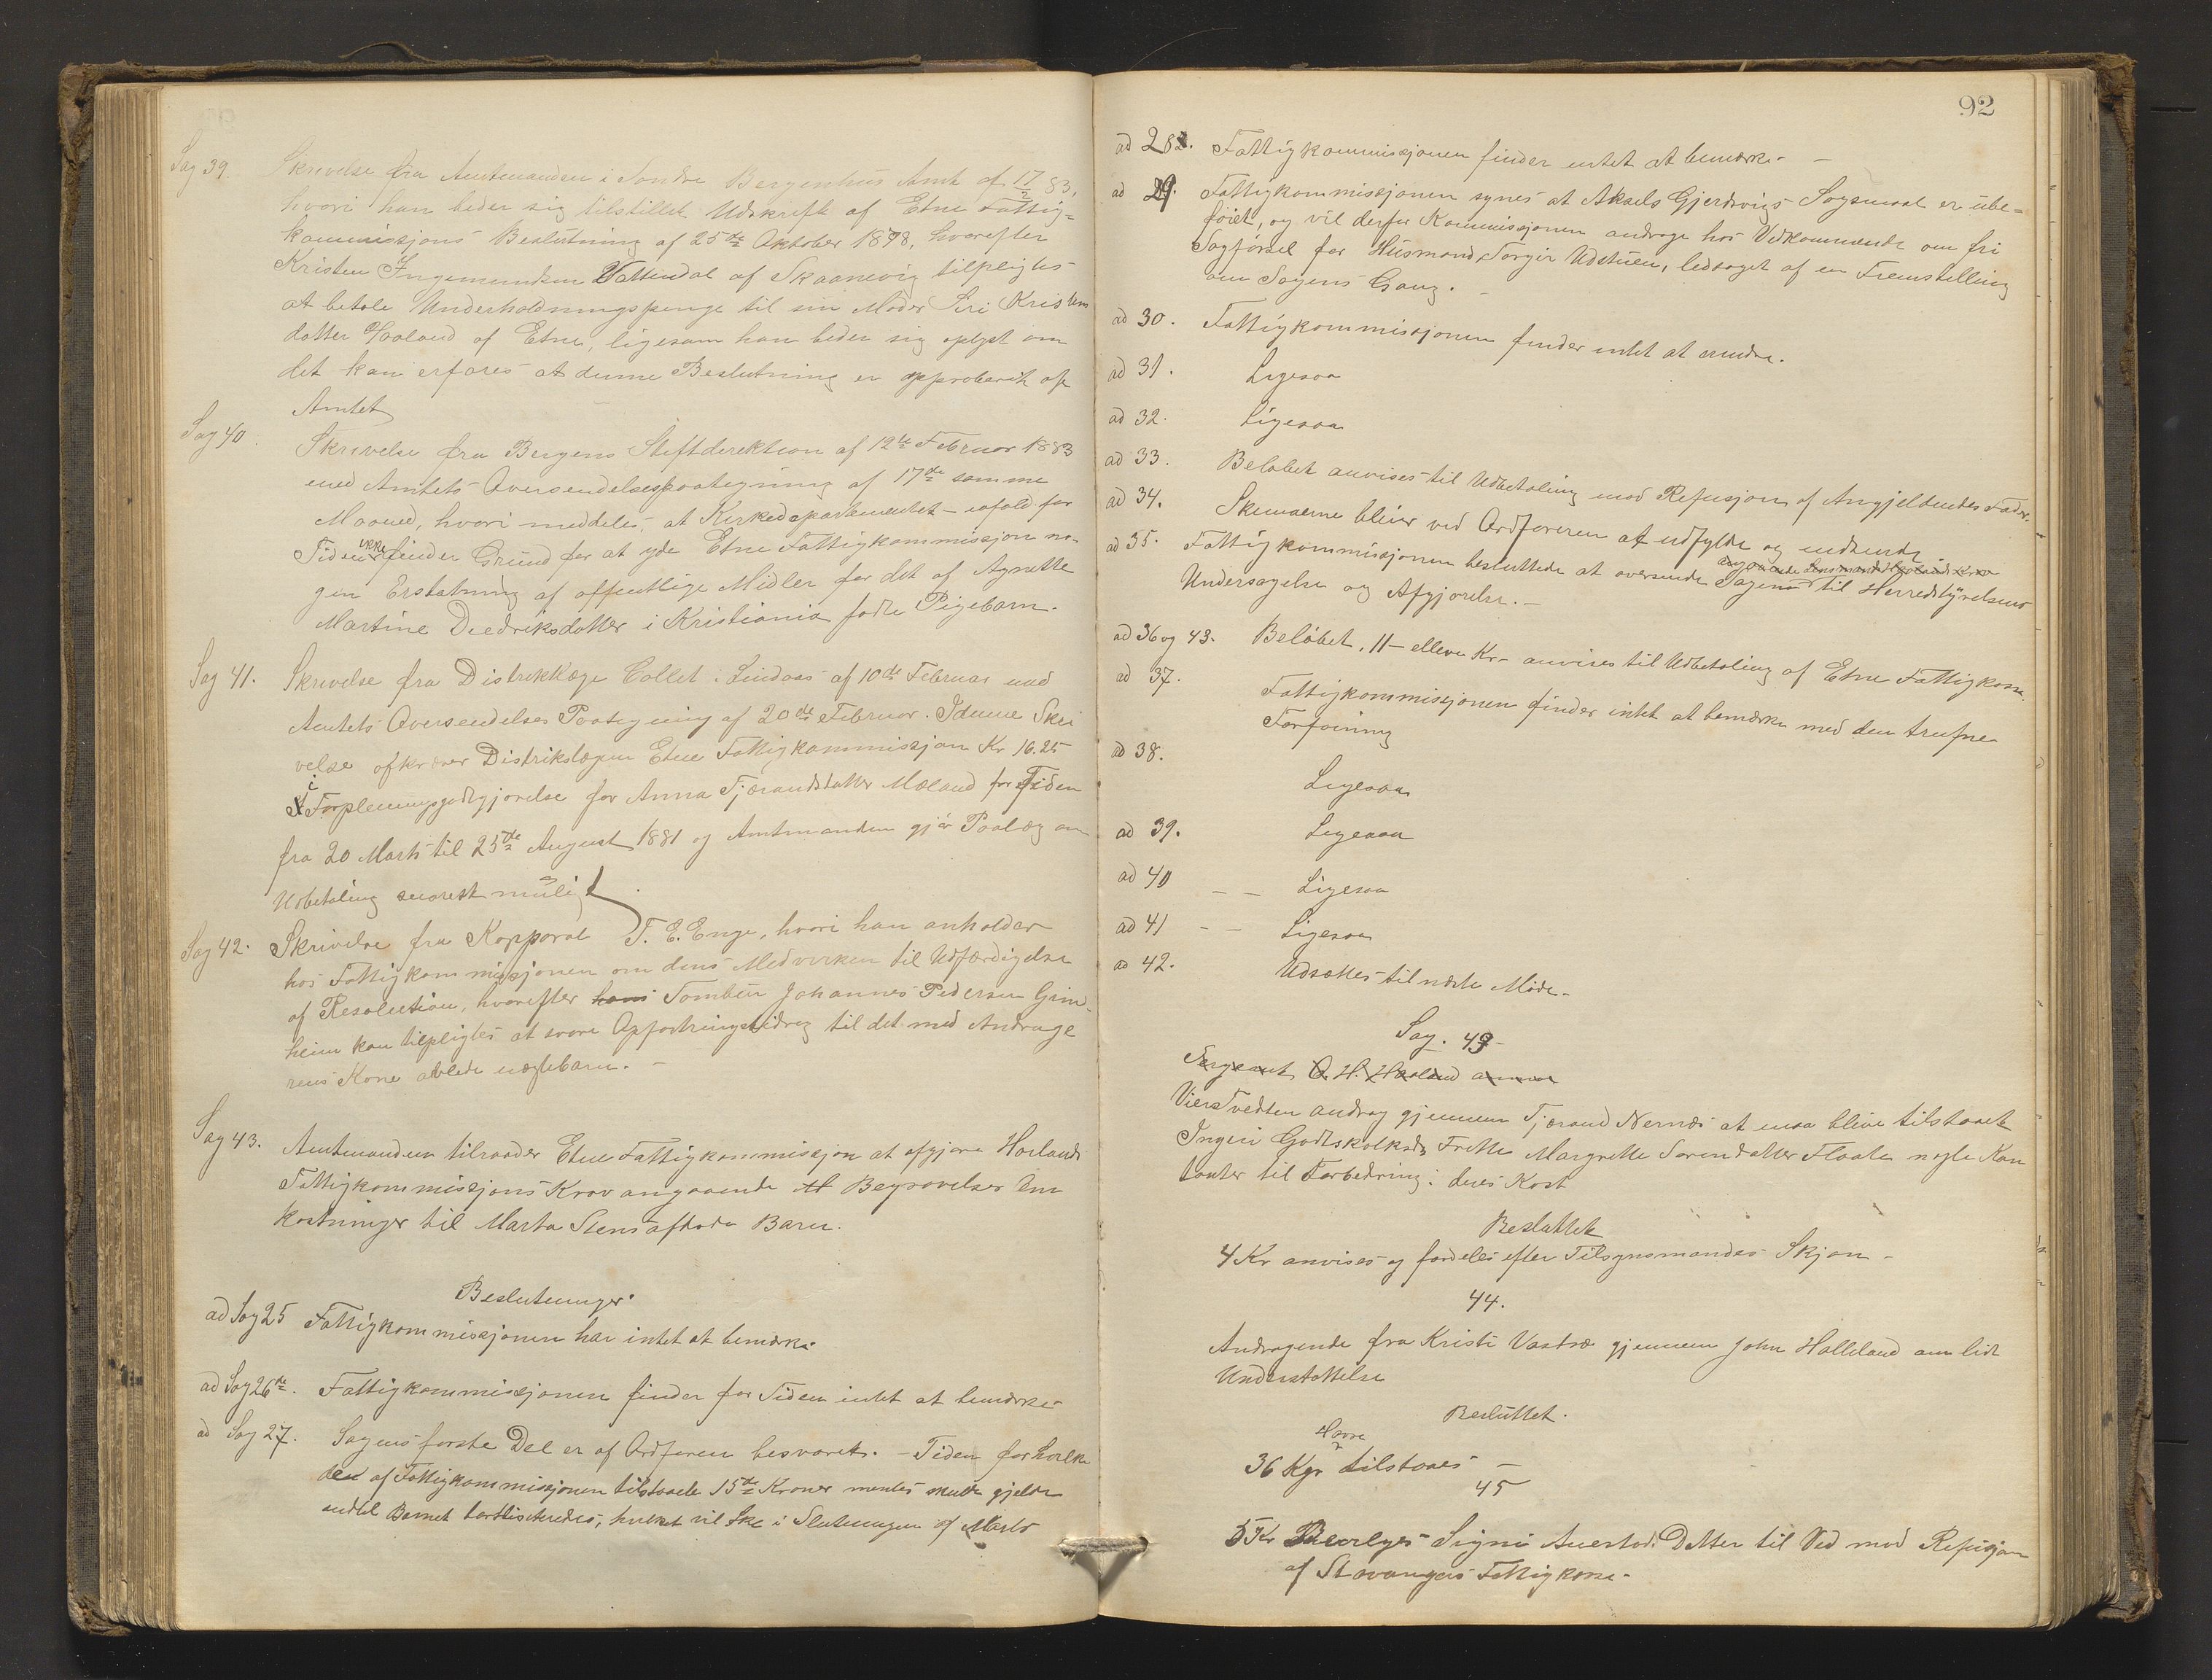 Sag 39. Skrivelse fra Amtmanden i Søndre Bergenhus Amt af 17/2 83,
hvori han beder sig tilstillet Udskrift af Etne Fattig-
kommissjons Beslutning af 25de Oktober 1878, hvorefter
Kristen Ingemundsen Vattendal af Skaanevig tilpligtes
at betale Underholdningspenge til sin Moder Siri Kristens
datter Haaland af Etne, ligesom han beder sig oplyst om
det kan erfares at denne Beslutning er approberet af
Amtet
Sag 40. Skrivelse fra Bergens Stiftdirektion af 12te Februar 1883
med Amtets Oversendelsespaategning af 17de samme
Maaned, hvori meddeles, at Kirkedepartementet – ialfald for
Tiden ikke finder Grund for at yde Etne Fattigkommissjon no-
gen Erstatning af offentlige Midler for det af Agnette
Martine Diedriksdatter i Kristiania fødte Pigebarn.
Sag 41. Skrivelse fra Distriktlæge Collet i Lindaas af 10de Februar med
Amtets Oversendelses Paategning af 20de Februar. I denne Skri
velse afkræver Distriktslægen Etne Fattigkommissjon Kr 16.25
i Forpleiningsgodtgjørelse for Anna Tjærandsdatter Mæland for Tiden
fra 20 Marts til 25de August 1881 og Amtmanden gjør Paalæg om
Udbetaling snarest mulig
Sag 42. Skrivelse fra Kopporal T. E. Enge, hvori han anholder
hos Fattigkommissjonen om dens Medvirken til Udfærdigelse
af Resolution, hvorefter hans Tombur Johannes Pedersen Grind-
heim kan tilpligtes at svare Opfostringsbidrag til det med Andrage
rens Kone avlede uægtebarn. –
Sag 43. Amtmanden tilraader Etne Fattigkommissjon at afgjøre Høilands
Fattigkommissjons Krav angaaende Begravelses Om
kostninger til Marta Stens afdøde Barn.
Beslutninger.
ad Sag 25 Fattigkommissjonen har intet at bemærke
ad Sag 26de. Fattigkommissjonen finder for Tiden intet at bemærke
ad Sag 27. Sagens første Del er af Ordføren besvaret. – Tiden for hvilke
den af Fattigkommissjonen tilstaaede 15de Kroner mentes skulde gjelde
indtil Barnet bortlisiteredes, hvilket vil ske i Slutningen af Marts
92
ad 28. Fattigkommissjonen finder intet at bemærke –
ad 29. Fattigkommissjonen synes at Aksels Gjerdevigs Søgsmaal er ube-
føiet, og vil derfor Kommissjonen andrage hos Vedkommende om fri
Sagførsel for Husmand Torgir Udstuen, ledsaget af en Fremstilling
om Sagens Gang.
ad 30. Fattigkommissjonen finder intet at ændre.
ad 31. Ligesaa
ad 32. Ligesaa
ad 33. Beløbet anvises til Udbetaling mod Refusjon af Angjeldendes Fader.
ad 34. Skemaerne bliver ved Ordføreren at udfylde og indsende
angaaende Lensmand Haalands Krav
ad 35. Fattigkommissjonen besluttede at oversende Sagen til Herredstyrelsens
Undersøgelse og Afgjørelse. –
ad 36 og 43. Beløbet, 11 – elleve Kr – anvises til Udbetaling af Etne Fattigkasse
ad 37. Fattigkommissjonen finder intet at bemærke med den trufne
Forføining
ad 38. Ligesaa
ad 39. Ligesaa
ad 40 – – Ligesaa
ad 41 – – Ligesaa
ad 42. Udsættes til næste Møde –
Sag. 43 –
Sergeant O. H. Haaland
Viers Tvedten andrag gjennem Tjærand Nernæs at maa blive tilstaaet
Ingeri Godtskalksd Frette Margrette Sørendatter Flaate nogle Kon
tanter til Forbedring i deres Kost
Besluttet
4 Kr anvises og fordeles efter Tilsynsmandes Skjøn –
44.
Andragende fra Kristi Vastvæ gjennem John Halleland om lidt
Understøttelse
Besluttet.
Havre
36 Kgr tilstaaes –
45
5 Kr Bevilges Signi Auestad Datter til Ved mod Refusjon
af Stavangers Fattigkasse –